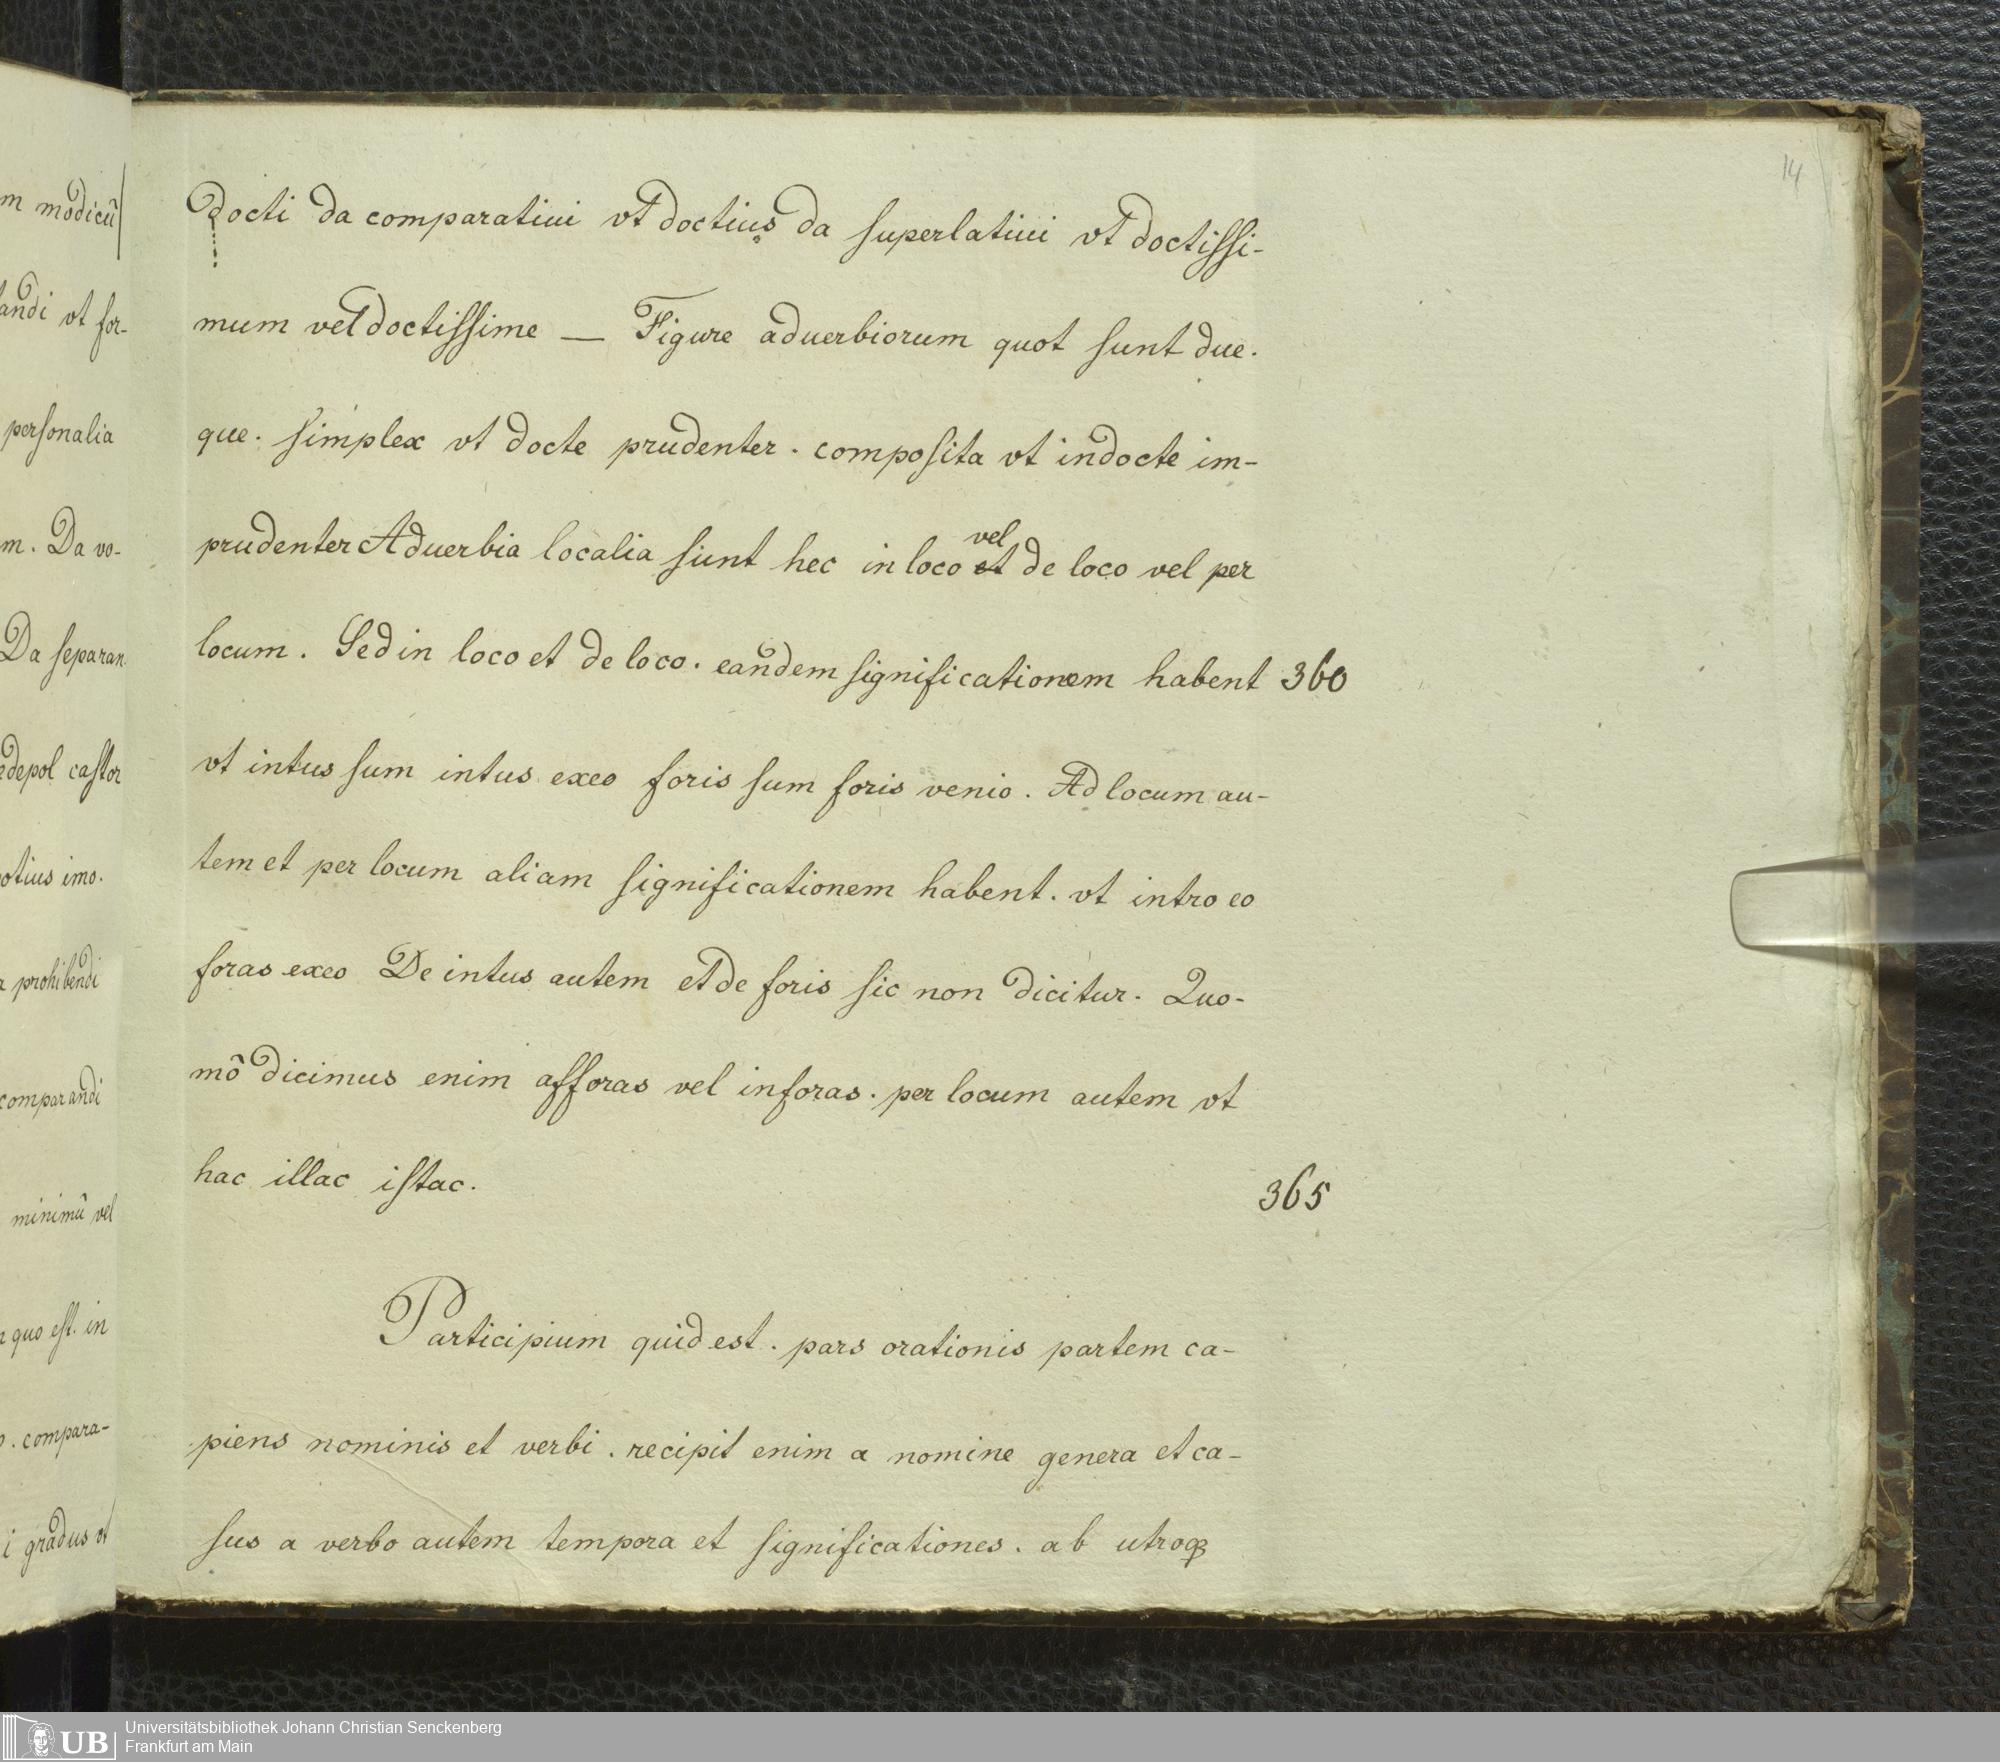 14
m modicū
docti da comparatiui vt doctius da superlatiui vt doctissi-
landi vt for-
mum vel doctissime — Figure aduerbiorum quot sunt due.
personalia
que. simplex vt docte prudenter. composita vt indocte im-
vel
m. Da vo-
prudenter Aduerbia localia sunt hec in loco et de loco vel per
Da separan
locum. Sed in loco et de loco. eandem significationem habent 360
edepol castor
vt intus sum intus exeo foris sum foris venio. Ad locum au-
potius imo.
tem et per locum aliam significationem habent. vt intro eo
prohibendi
foras exeo De intus autem et de foris sic non dicitur. Quo-
comparandi
mō dicimus enim afforas vel inforas. per locum autem vt
minimū vel
hac illac istac. 365
quo est. in
Participium quid est. pars orationis partem ca-
. compara-
piens nominis et verbi. recipit enim a nomine genera et ca-
i gradus vt
sus a verbo autem tempora et significationes. ab utroqꝫ
UB Universitätsbibliothek Johann Christian Senckenberg
Frankfurt am Main